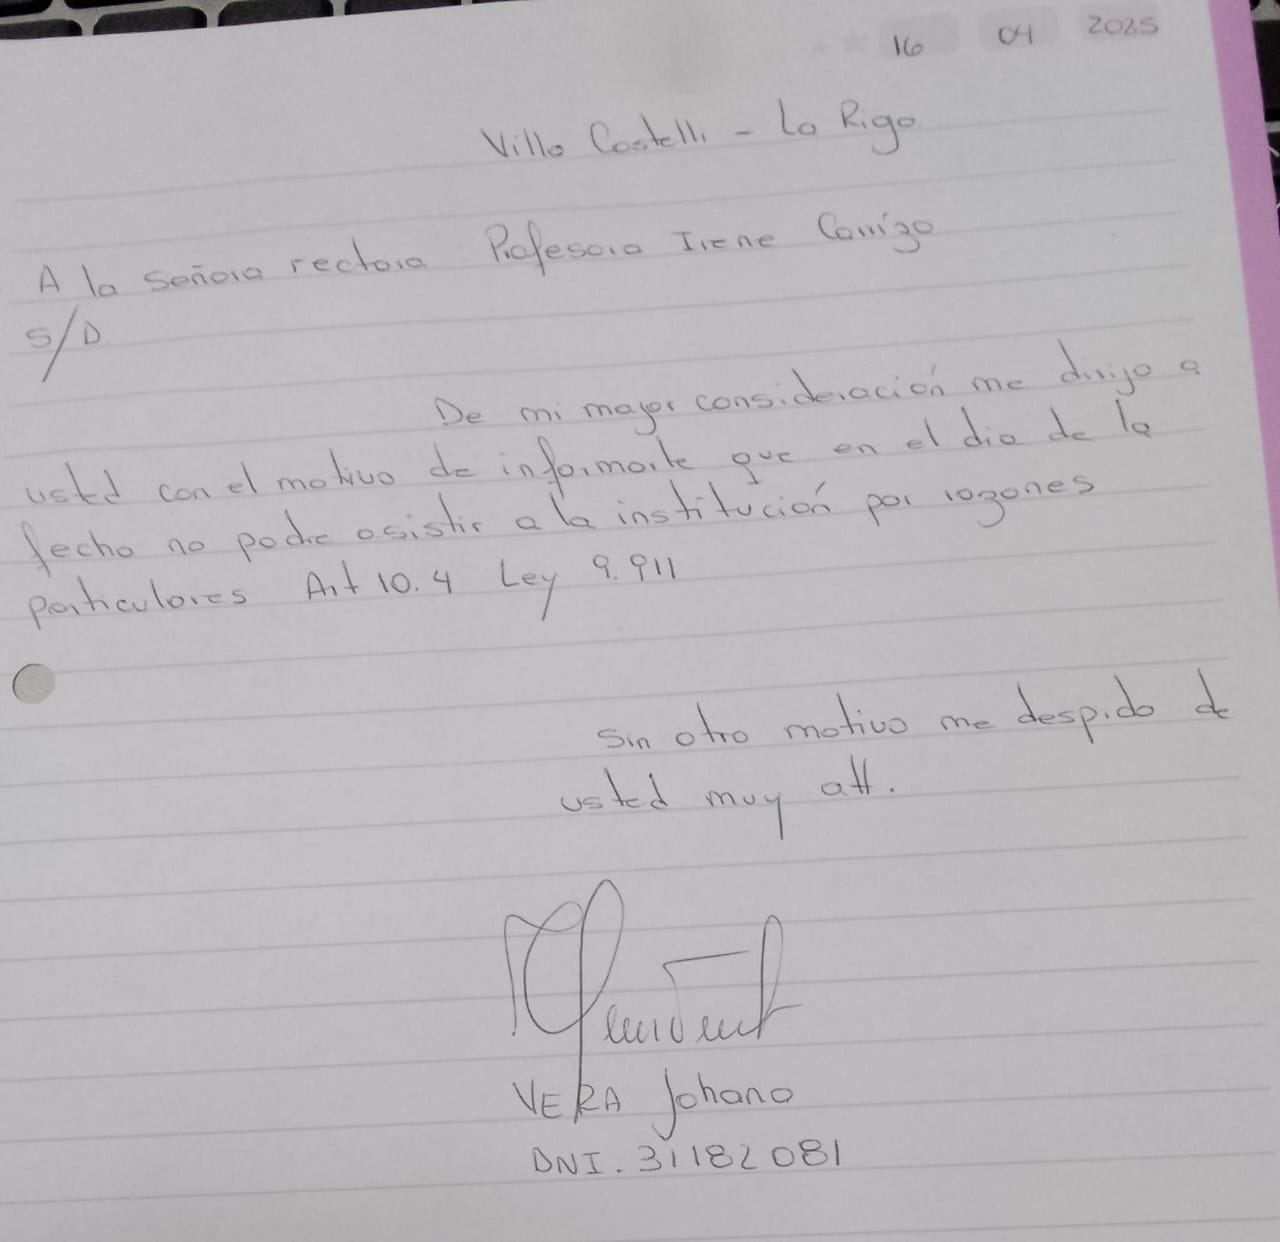 16 04 2025
Villa Castelli - La Rioja
A la señora rectora Profesora Irene Carrizo
S/D
De mi mayor consideración me dirijo a
usted con el motivo de informarle que en el dia de la
fecha no podre asistir a la institución por razones
particulares Art 10.4 Ley 9.911
Sin otro motivo me despido de
usted muy att.
VERA Johana
DNI. 31182081